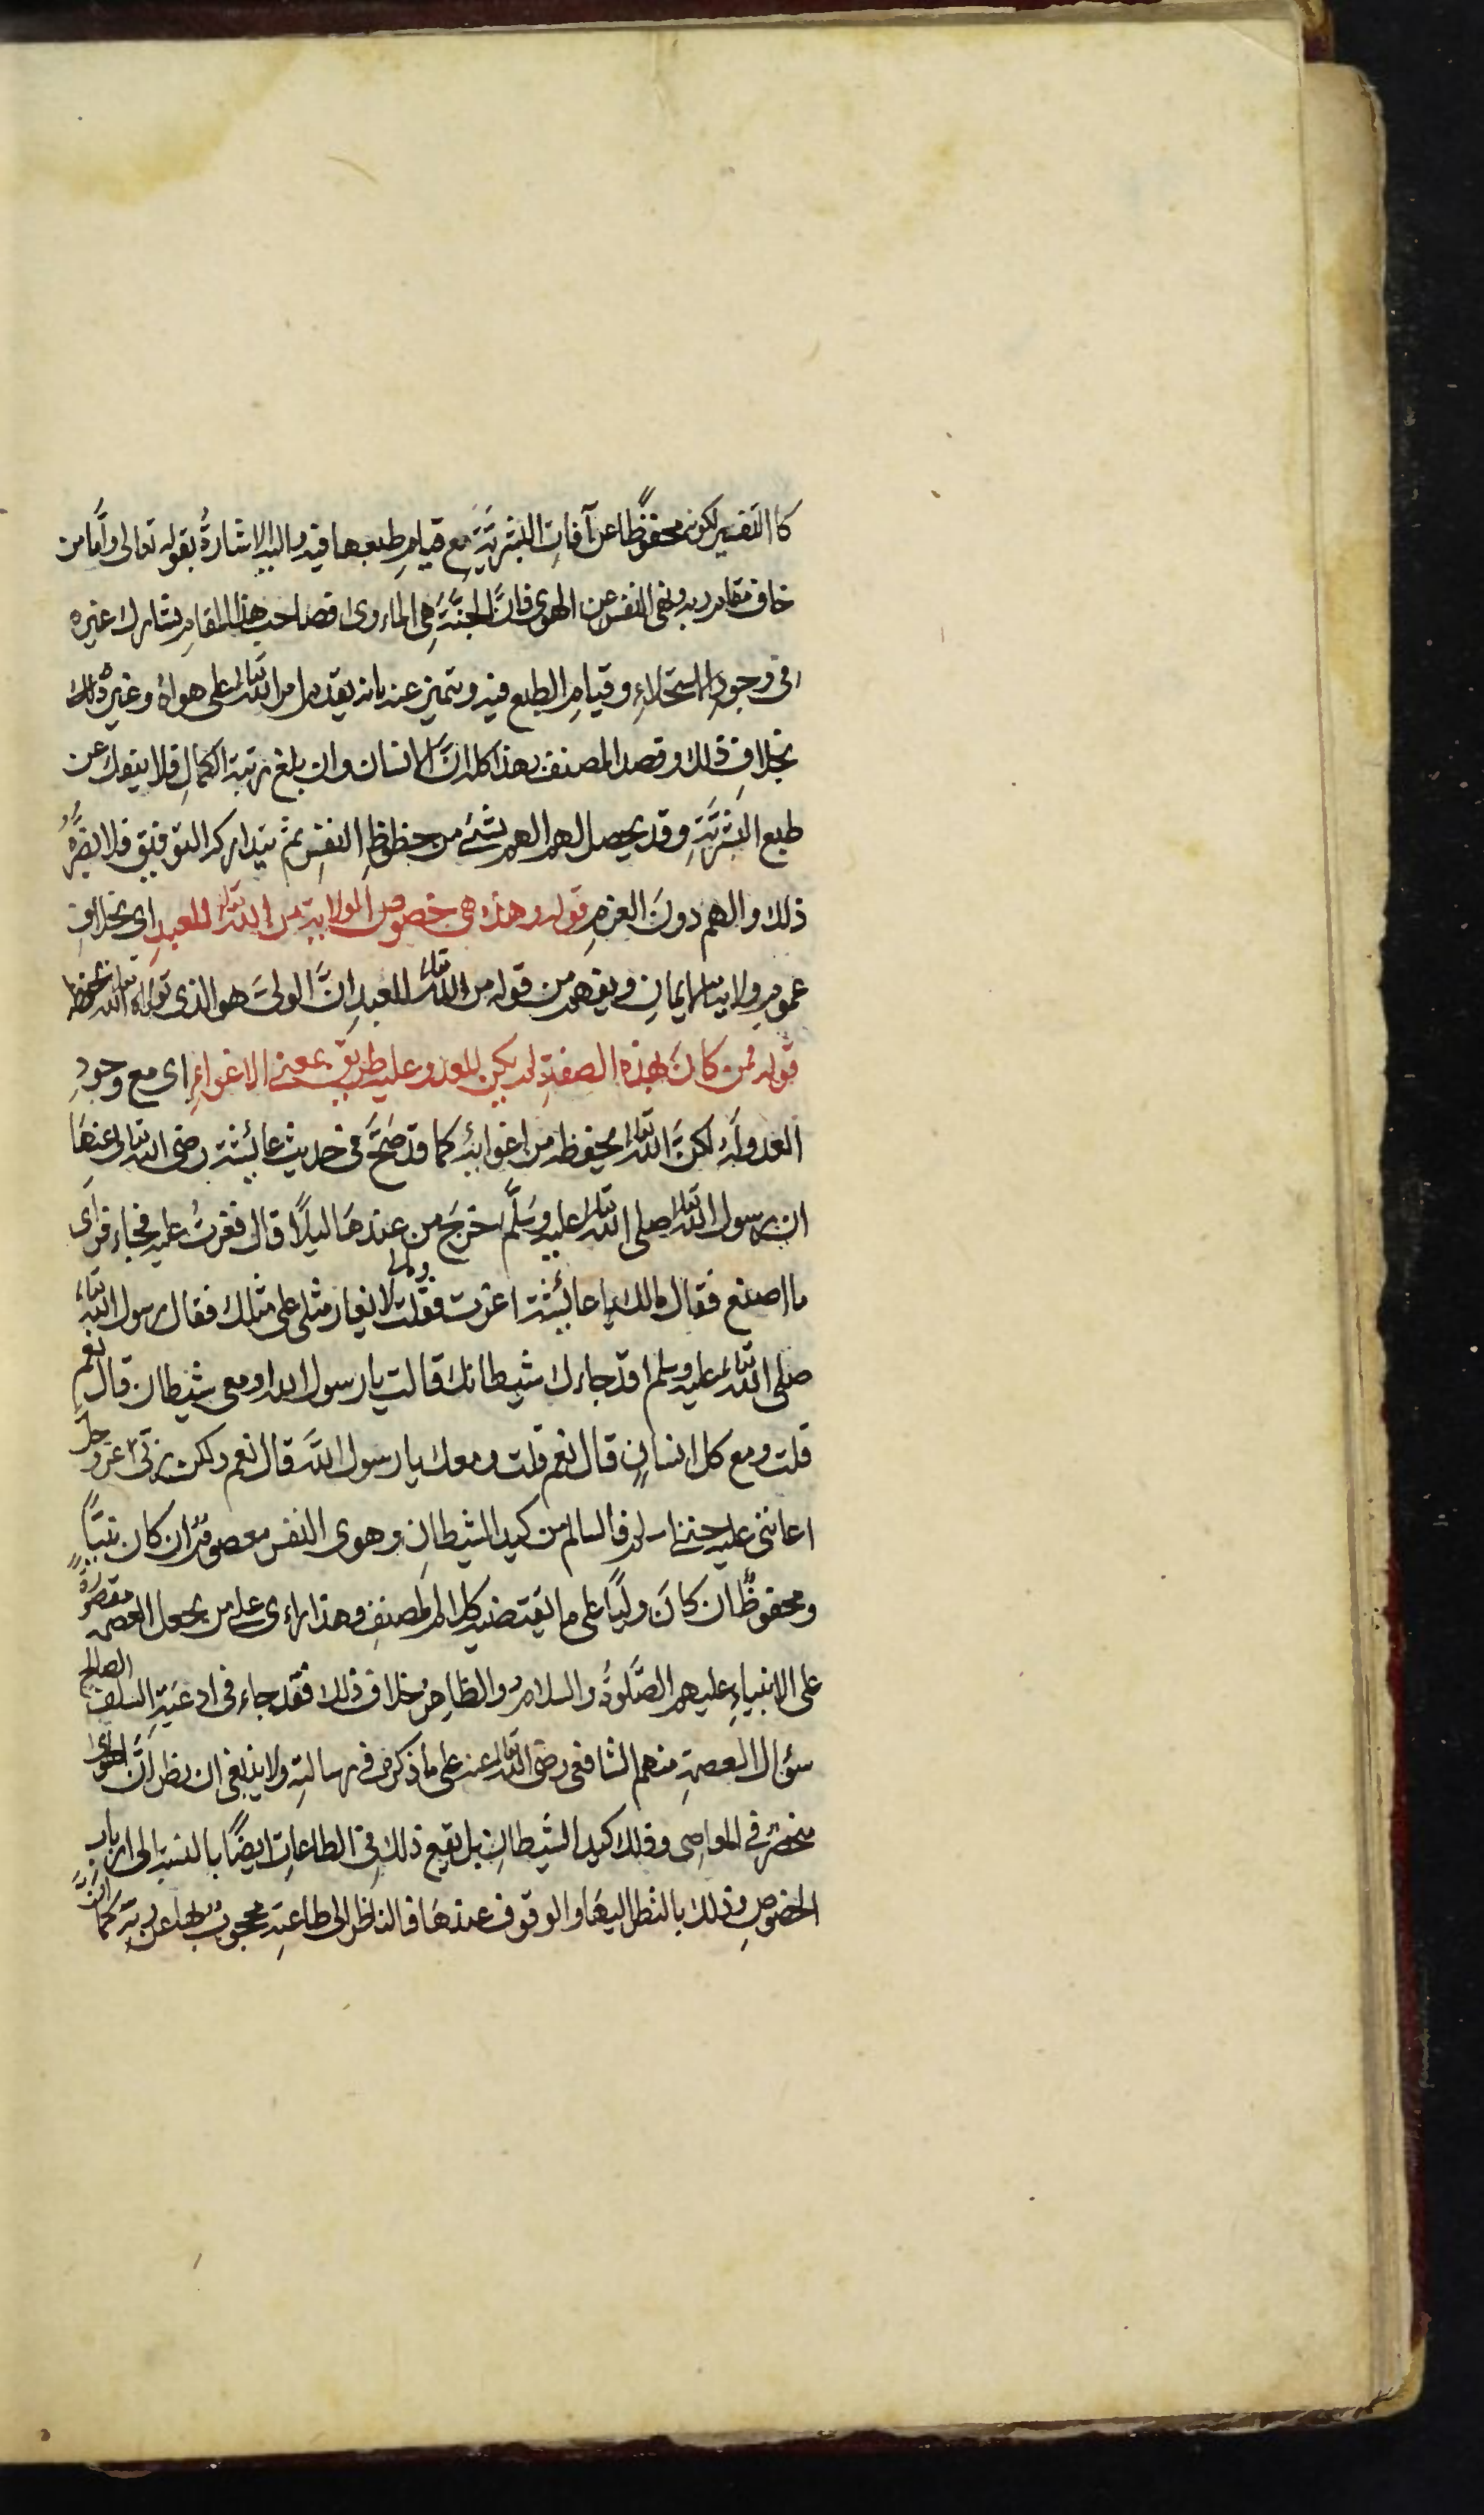 كالتفسير لكونه محفوظًا عن آفاتِ البشريّةِ مع قيامِ طبعها فيه واليه الاشارةُ بقوله تعالى وأمّا من
خاف مقام ربه ونهى النفس عن الهوى فانّ الجنّةَ هي الماءوى فصاحب هذا المقام يشارك غيره
في وجودِ الاستحلاءِ وقيامِ الطبع فيه ويتميز عنه بانه يقدم امر الله تعالى على هواهُ وغيرُه
بخلافِ ذلك وقصد المصنف بهذا كله انّ الانسان وان بلغ رتبة الكمالِ فلا ينفك عن
طبع البشريّةِ وقد يحصل لهم الهم بشئ من حظوظِ النفسِ ثم يتداركه التوفيق فلا يضرُّهُ
ذلك والهم دونَ العزمِ قوله وهذه هي خصوص الولاية من الله تعالى للعبدِ اى بخلافِ
عمومِ ولاية الايمانِ ويفهم من قوله من الله تعالى للعبدِ انَّ الولىَّ هو الذى تولاه الله تعالى بحفظه
قوله فمن كانَ بهذه الصفةِ لم يكن للعدو عليه طريق بمعنى الاغواءِ اى مع وجودِ
العدو له لكنّ الله تعالى يحفظه من اغوائه كما قد صَحَّ فى حديث عائشة رضى الله تعالى عنها
ان رسول الله تعالى صلى الله تعالى عليه وسَلَّم خرجَ من عندهَا ليلًا قال فغرتُ عليه فجاء فرَأى
ما اصنع فقال مالك يا عائشة اغرت فقلت ومالى لا يغار مثلى على مثلك فقال رسول الله تعالى
صلى الله تعالى عليه وسلم اقد جاءك شيطانك قالت يا رسول الله او معى شيطان قال نعم
قلت ومع كل انسانٍ قال نعم قلت ومعك يا رسول الله قال نعم ولكن ربّى عز وجل
اعاننى عليه حتى اسلم فالسالم من كيد الشيطانِ وهوى النفس معصومٌ ان كان نبيًّا
ومحفوظٌ ان كانَ وليًّا على ما يقتضيه كلام المصنفِ وهذا راءى على من يجعل العصمة مقصورةً
على الانبياءِ عليهم الصَّلوةُ والسلامُ والظاهرُ خلاف ذلك فقد جاء فى ادعيَةِ السلف الصالح
سؤال العصمةِ منهم الشافعى رضى الله تعالى عنه على ما ذكره فى رسالتِه ولا ينبغى ان يظن انّ الهوى
منحصرٌ في المعاصى وذلك كيد الشيطانِ بل يقع ذلك فى الطاعاتِ ايضًا بالنسبة الى اربابِ
الخصوصِ وذلك بالنظر اليهَا والوقوف عندهَا فالناظر الى طاعتِه محجوبٌ بها عن ربّه كما انَّ